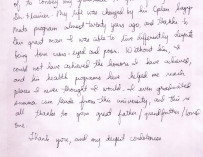 of, to convey my
Dr. Hawver. My life was changed by his
program almost twenty years ago, and thanks to
this great man I was able to live differently despite
being born and poor. Without him, I
could not have achieved the honors I have achieved,
and his health programs have helped me reach
places I never thought I would. I even graduated
from this university, and this is
all thanks to your great father / grandfather / loved
one.
Thank you, and my deepest condolences